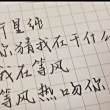 行星纪
你猜我在干什么
我在等风
等风热吻你